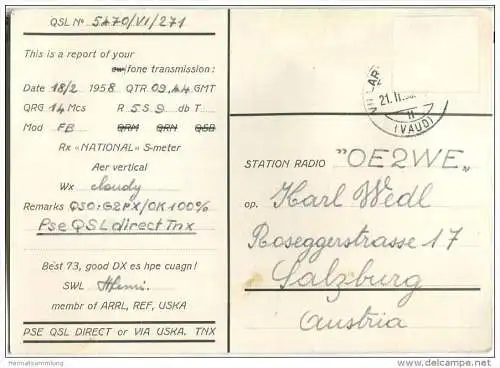 QSL No 5470/VI/271
This is a report of your
cw/fone transmission:
Date 18/2 1958 QTR 09.44 GMT
QRG 14 Mcs R 5 S 9 db T
Mod FB QRM QRN QSB
Rx «NATIONAL» S-meter
Aer vertical
Wx cloudy
Remarks QSO: G2PX/OK 100%
Pse QSL direct Tnx
Best 73, good DX es hpe cuagn!
SWL
membr of ARRL, REF, USKA
PSE QSL DIRECT or VIA USKA. TNX
21. II.
(VAUD)
STATION RADIO "OE2WE"
op. Karl Wedl
Roseggerstrasse 17
Salzburg
Austria
heimatsammlung
www.delcampe.net